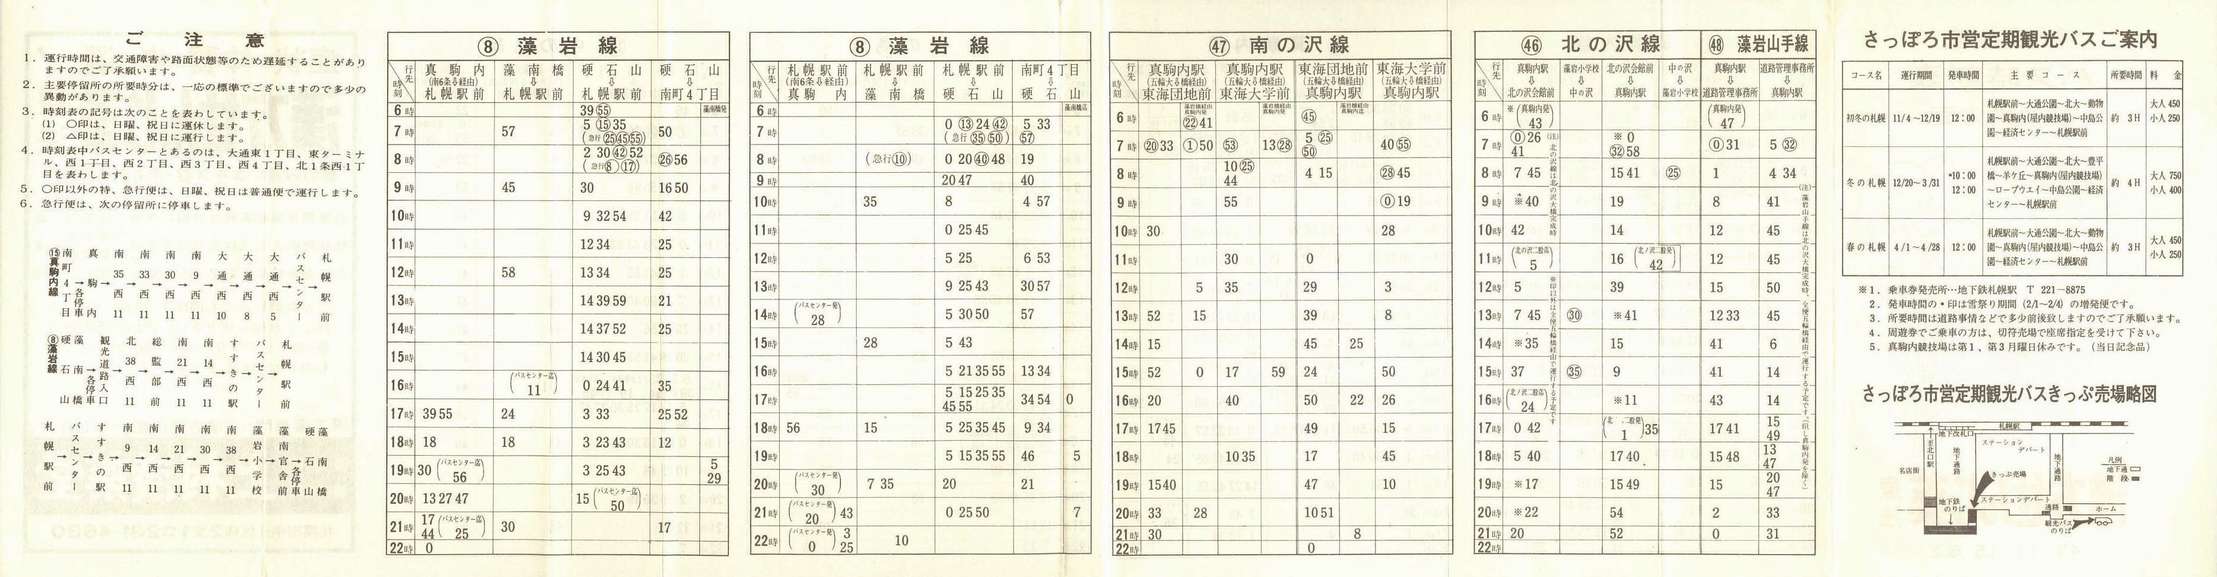 ご注意
1．運行時間は、交通障害や路面状態等のため遅延することがあり
ますのでご了承願います。
2．主要停留所の所要時分は、一応の標準でございますので多少の
異動があります。
3．時刻表の記号は次のことを表わしています。
(1) 〇印は、日曜、祝日に運休します。
(2) △印は、日曜、祝日に運行します。
4．時刻表中バスセンターとあるのは、大通東1丁目、東ターミナ
ル、西1丁目、西2丁目、西3丁目、西4丁目、北1条西4丁
目を表わします。
5．〇印以外の特、急行便は、日曜、祝日は普通便で運行します。
6．急行便は、次の停留所に停車します。
⑮真駒内線
南町4丁目→各停車→真駒内→南35西11→南33西11→南30西11→南9西11→大通西10→大通西8→大通西5→バスセンター→札幌駅前
⑧藻岩線
硬石山 藻南橋→各停車→観光道路入口→北38西11→総監部前→南21西11→南14西11→すすきの駅→バスセンター→札幌駅前
札幌駅前→バスセンター→すすきの駅→南9西11→南14西11→南21西11→南30西11→南38西11→藻岩小学校→藻南官舎前→各停車→硬石山 藻南橋
⑧ 藻岩線
行先 時刻
真駒内（南6条経由）⇩札幌駅前
藻南橋⇩札幌駅前
硬石山⇩札幌駅前
硬石山⇩南町4丁目
藻南橋発
6時 39 ㊺
7時 57 5 ⑮ 35 (急行 ㉕㊺㊺) 50
8時 2 30 ㊷ 52 (急行 ⑧ ⑰) ㉖ 56
9時 45 30 16 50
10時 9 32 54 42
11時 12 34 25
12時 58 13 34 25
13時 14 39 59 21
14時 14 37 52 25
15時 14 30 45
16時 (バスセンター迄 11) 0 24 41 35
17時 39 55 24 3 33 25 52
18時 18 18 3 23 43 12
19時 30 (バスセンター迄 56) 3 25 43 5 29
20時 13 27 47 15 (バスセンター迄 50)
21時 17 44 (バスセンター迄 25) 30 17
22時 0
⑧ 藻岩線
行先 時刻
札幌駅前（南6条経由）⇩真駒内
札幌駅前⇩藻南橋
札幌駅前⇩硬石山
南町4丁目⇩硬石山
藻南橋迄
6時
7時 0 ⑬ 24 ㊷ (急行 ㉟ ㊿) 5 33 (57)
8時 (急行 ⑩) 0 20 ㊵ 48 19
9時 20 47 40
10時 35 8 4 57
11時 0 25 45
12時 5 25 6 53
13時 9 25 43 30 57
14時 (バスセンター発 28) 5 30 50 57
15時 28 5 43
16時 5 21 35 55 13 34
17時 5 15 25 35 45 55 34 54 0
18時 56 15 5 25 35 45 9 34
19時 5 15 35 55 46 5
20時 (バスセンター発 30) 7 35 20 21
21時 (バスセンター発 20) 43 0 25 50 7
22時 (バスセンター発 0) 3 25 10
㊼ 南の沢線
行先 時刻
真駒内駅（五輪大橋経由）⇩東海団地前
真駒内駅（五輪大橋経由）⇩東海大学前
東海団地前（五輪大橋経由）⇩真駒内駅
東海大学前（五輪大橋経由）⇩真駒内駅
6時 ㉒ 41 ㊺
7時 ⑳ 33 ① 50 (53) 13 ㉘ 5 ㉕ ㊿ 40 (55)
8時 10 ㉕ 44 4 15 ㉘ 45
9時 55 ⓪ 19
10時 30 28
11時 30 0
12時 5 35 29 3
13時 52 15 39 8
14時 15 45 25
15時 52 0 17 59 24 50
16時 20 40 50 22 26
17時 17 45 49 15
18時 10 35 17 45
19時 15 40 47 10
20時 33 28 10 51
21時 30 8
22時 0
㊻ 北の沢線
行先 時刻
真駒内駅⇩北の沢会館前
藻岩小学校⇩中の沢
北の沢会館前⇩真駒内駅
中の沢⇩藻岩小学校
㊽ 藻岩山手線
真駒内駅⇩道路管理事務所
道路管理事務所⇩真駒内駅
6時 ※(真駒内発 43) (真駒内発 47)
7時 ⓪ 26 41 ※ 0 ㉜ 58 ⓪ 31 5 ㉜
8時 7 45 15 41 ㉕ 1 4 34
9時 ※40 19 8 41
10時 42 14 12 45
11時 (北の沢二股迄 5) 16 (北ノ沢二股発 42) 12 45
12時 5 39 15 50
13時 7 45 ㉚ ※41 12 33 45
14時 ※35 15 41 6
15時 37 ㉟ 9 41 14
16時 (北ノ沢二股迄 24) ※11 43 14
17時 0 42 (北ノ二股発 1) 35 17 41 15 49
18時 5 40 17 40 15 48 13 47
19時 ※17 15 49 15 20 47
20時 ※22 54 2 33
21時 20 52 0 31
22時
さっぽろ市営定期観光バスご案内
コース名 運行期間 発車時間 主要コース 所要時間 料金
初冬の札幌 11/4～12/19 12：00 札幌駅前～大通公園～北大～動物園～真駒内(屋内競技場)～中島公園～経済センター～札幌駅前 約3H 大人450 小人250
冬の札幌 12/20～3/31 *10：00 12：00 札幌駅前～大通公園～北大～豊平橋～羊ケ丘～真駒内(屋内競技場)～ロープウエイ～中島公園～経済センター～札幌駅前 約4H 大人750 小人400
春の札幌 4/1～4/28 12：00 札幌駅前～大通公園～北大～動物園～真駒内(屋内競技場)～中島公園～経済センター～札幌駅前 約3H 大人450 小人250
※1．乗車券発売所…地下鉄札幌駅 T 221－8875
2．発車時間の・印は雪祭り期間（2/1～2/4）の増発便です。
3．所要時間は道路事情などで多少前後致しますのでご了承願います。
4．周遊券でご乗車の方は、切符売場で座席指定を受けて下さい。
5．真駒内競技場は第1、第3月曜日休みです。（当日記念品）
さっぽろ市営定期観光バスきっぷ売場略図
札幌駅
地下改札口
至北口駅
地下通路
ステーション
デパート
地下通路
名店街
きっぷ売場
凡例
地下通
階段
地下鉄
のりば
ステーションデパート
通路
ホーム
観光バス
のりば